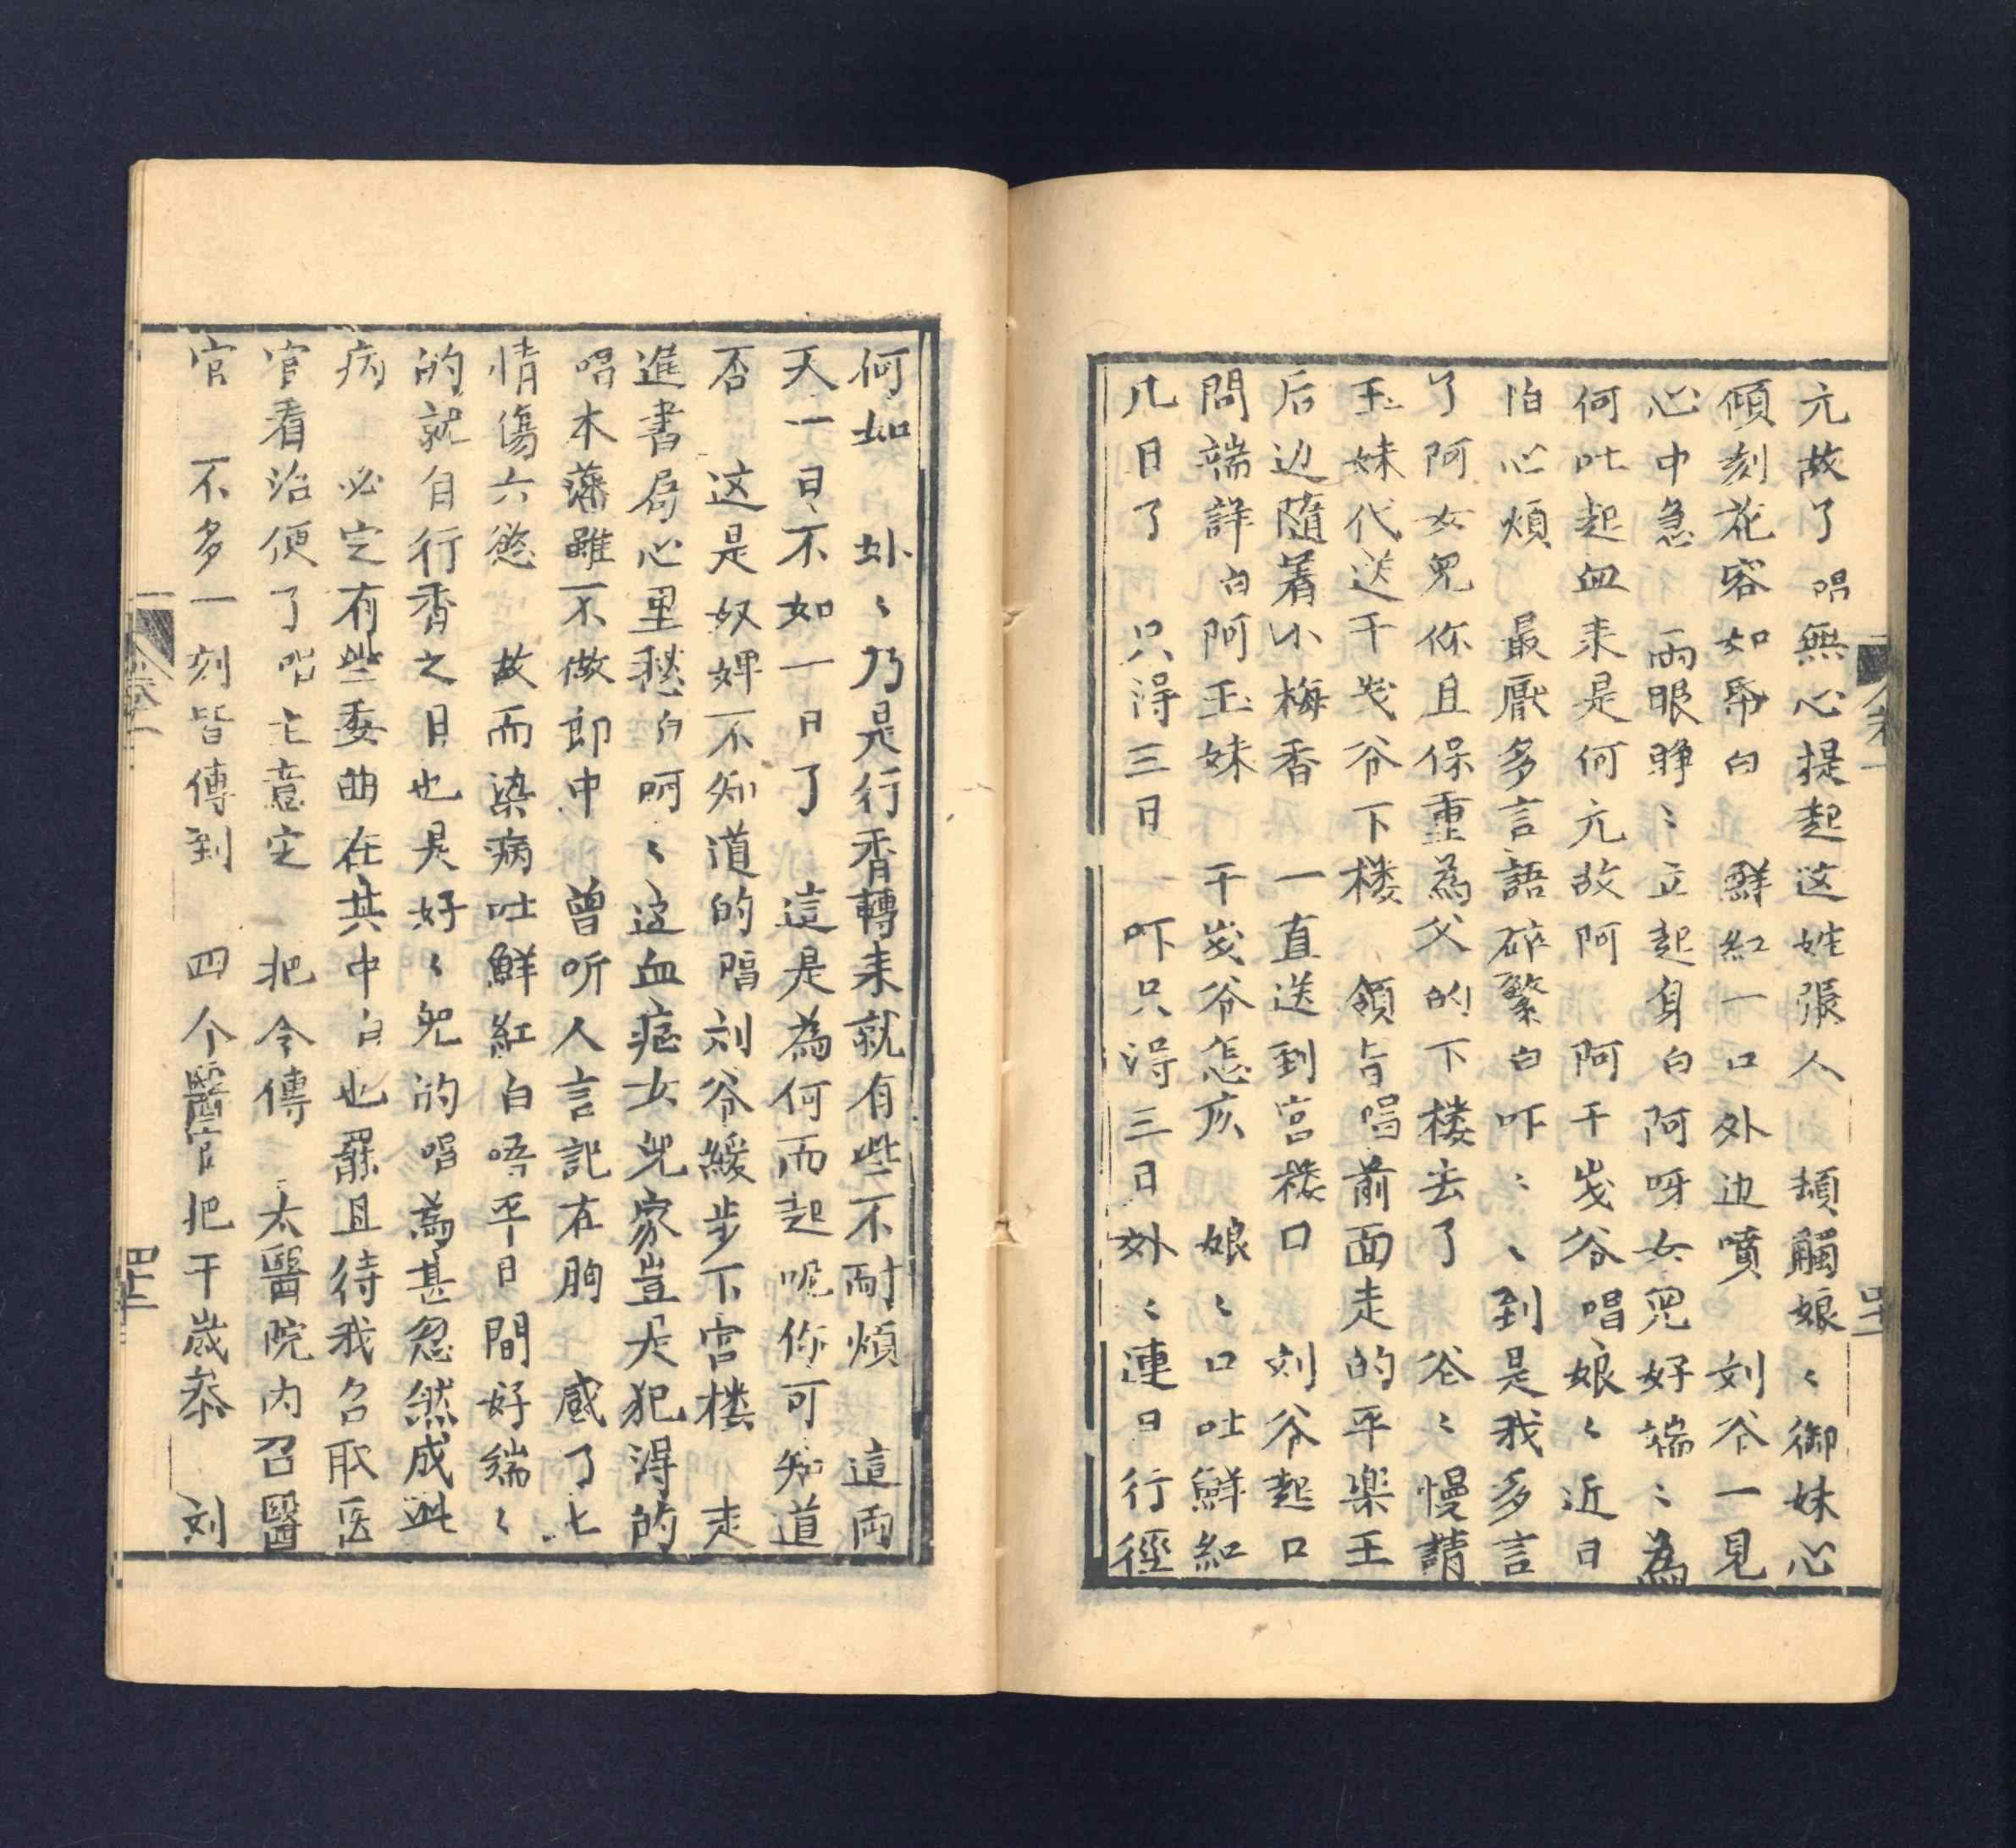 元故了唱無心提起这姓張人 頓觸娘〻御妹心
傾刻花容如帋白 鮮紅一口外边噴 刘爷一見
心中急 兩眼睁〻立起身白阿呀女兒好端〻為
何吐起血来是何元故阿 阿千岁爷唱娘〻近日
怕心煩 最厭多言語碎繁白吓〻〻到是我多言
了阿女兒你且保重為父的下楼去了 爷〻慢請
玉妹代送千岁爷下楼 領旨唱前面走的平楽王
后边随着小梅香 一直送到宫楼口 刘爷起口
問端詳白阿玉妹 千岁爷怎亥 娘〻口吐鮮紅
几日了 只得三日 吓只得三日外〻連日行徑
何如 外〻乃是行香轉来就有些不耐煩 這両
天一日不如一日了 這是為何而起呢你可知道
否 这是奴婢不知道的唱刘爷緩步下宫楼 走
進書房心里愁白呵〻这血症女兒家豈犬犯得的
唱本藩雖不做郎中 曾听人言記在胸 感了七
情傷六慾 故而染病吐鮮紅白唔平日間好端〻
的就自行香之日也是好〻兒的唱為甚忽然成此
病 必定有些委曲在其中白也罷且待我召取医
官看治便了唱主意定 把令傳 太醫院内召醫
官 不多一刻皆傳到 四个醫官把千歲叅 刘
卷一
四十二